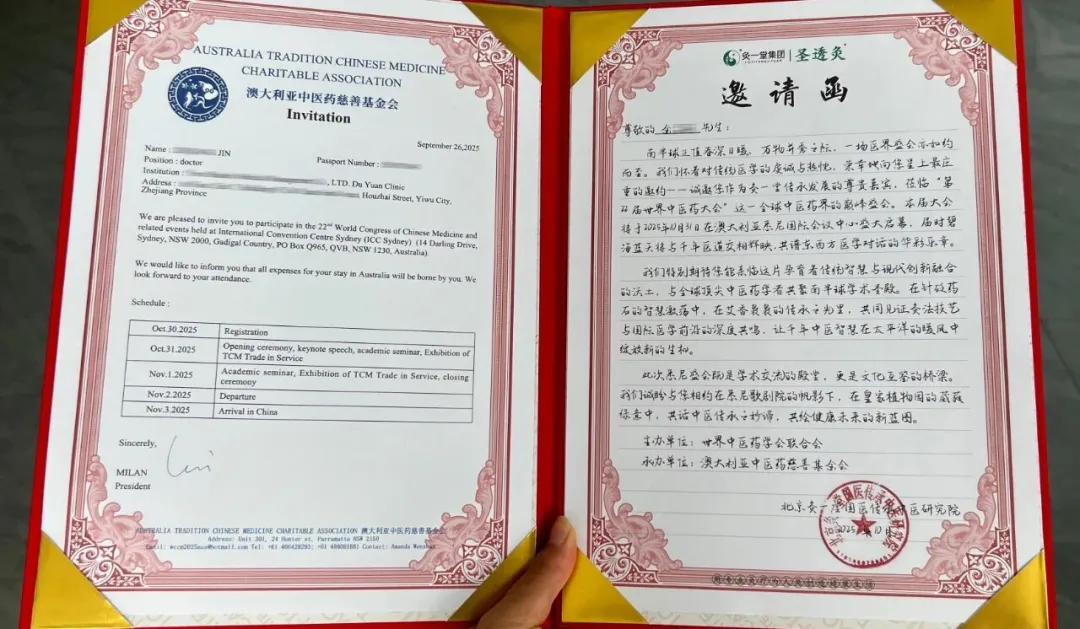 AUSTRALIA TRADITION CHINESE MEDICINE
CHARITABLE ASSOCIATION
澳大利亚中医药慈善基金会
Invitation
September 26,2025
Name : JIN
Position : doctor
Passport Number :
Institution : , LTD. Du Yuan Clinic
Address : Houzhai Street, Yiwu City,
Zhejiang Province
We are pleased to invite you to participate in the 22nd World Congress of Chinese Medicine and
related events held at International Convention Centre Sydney (ICC Sydney) (14 Darling Drive,
Sydney, NSW 2000, Gadigal Country, PO Box Q965, QVB, NSW 1230, Australia).
We would like to inform you that all expenses for your stay in Australia will be borne by you. We
look forward to your attendance.
Schedule :
Oct.30.2025 Registration
Oct.31.2025 Opening ceremony, keynote speech, academic seminar, Exhibition of
TCM Trade in Service
Nov.1.2025 Academic seminar, Exhibition of TCM Trade in Service, closing
ceremony
Nov.2.2025 Departure
Nov.3.2025 Arrival in China
Sincerely,
MILAN
President
AUSTRALIA TRADITION CHINESE MEDICINE CHARITABLE ASSOCIATION 澳大利亚中医药慈善基金会
Address: Unit 301, 24 Hunter st, Parramatta NSW 2150
Contact: Amanda
灸一堂集团 | 圣透灸
邀请函
尊敬的 金 先生：
南半球正值春深日暖，万物并秀之际，一场医界盛会亦如约
而至。我们怀着对传统医学的虔诚与热忱，荣幸地向您呈上最庄
重的邀约——诚邀您作为灸一堂传承发展的尊贵嘉宾，莅临“第
22届世界中医药大会”这一全球中医药界的巅峰盛会。本届大会
将于2025年10月31日在澳大利亚悉尼国际会议中心盛大启幕，届时碧
海蓝天将与千年医道交相辉映，共谱东西方医学对话的华彩乐章。
我们特别期待您能亲临这片孕育着传统智慧与现代创新融合
的沃土，与全球顶尖中医药学者共聚南半球学术圣殿。在针砭药
石的智慧激荡中，在艾香袅袅的传承之光里，共同见证灸法技艺
与国际医学前沿的深度共鸣，让千年中医智慧在太平洋的暖风中
绽放新的生机。
此次悉尼盛会既是学术交流的殿堂，更是文化互鉴的桥梁。
我们诚盼与您相约在悉尼歌剧院的帆影下，在皇家植物园的葳蕤
绿意中，共话中医传承之妙谛，共绘健康未来的新蓝图。
主办单位：世界中医药学会联合会
承办单位：澳大利亚中医药慈善基金会
北京灸一堂国医传承中医研究院